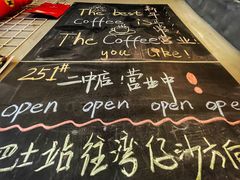 The best
Coffee is
The Coffee
you like!
251# 二中店!营业中!
open open open ope
巴士站往湾仔沙方向